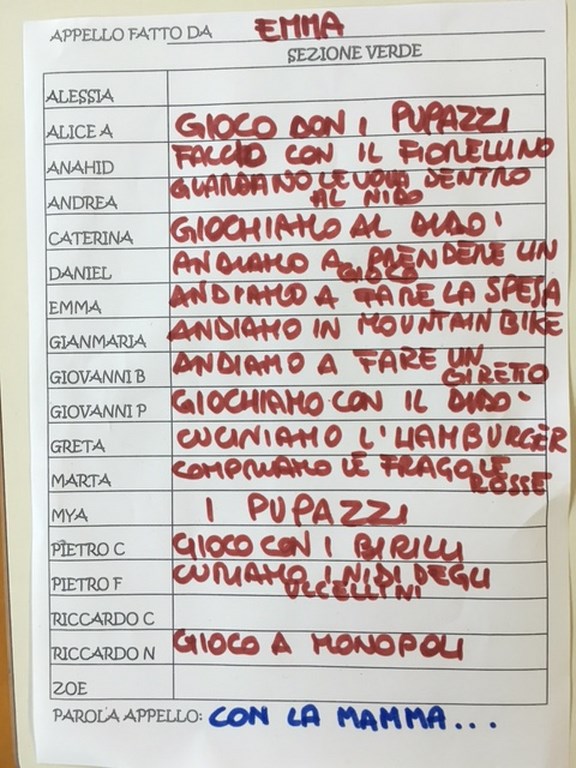 APPELLO FATTO DA EMMA
SEZIONE VERDE
ALESSIA
ALICE A GIOCO CON I PUPAZZI
ANAHID FACCIO CON IL FIORELLINO
ANDREA GUARDANO LE UOVA DENTRO
AL NIDO
CATERINA GIOCHIAMO AL DIDO'
DANIEL ANDIAMO A PRENDERE UN
GIOCO
EMMA ANDIAMO A FARE LA SPESA
GIANMARIA ANDIAMO IN MOUNTAIN BIKE
GIOVANNI B ANDIAMO A FARE UN
GIRETTO
GIOVANNI P GIOCHIAMO CON IL DIDO'
GRETA CUCINIAMO L'HAMBURGER
MARTA COMPRIAMO LE FRAGOLE
ROSSE
MYA I PUPAZZI
PIETRO C GIOCO CON I BIRILLI
PIETRO F CURIAMO I NIDI DEGLI
UCCELLINI
RICCARDO C
RICCARDO N GIOCO A MONOPOLI
ZOE
PAROLA APPELLO: CON LA MAMMA...